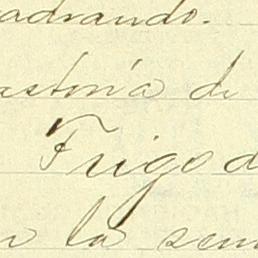 adrando.
astoria de
Frigo d
n la sem